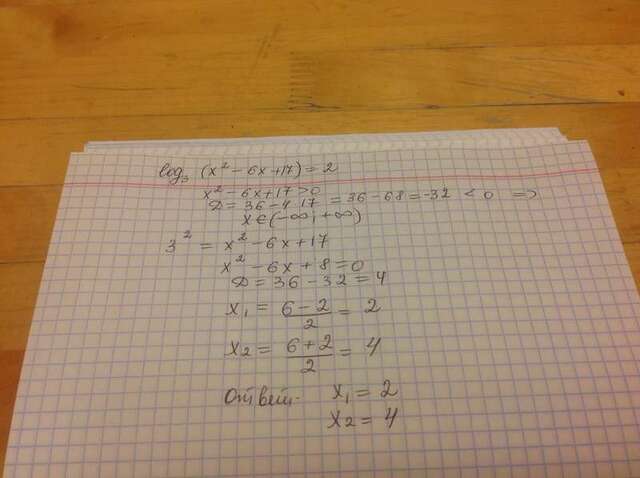 log₃ (x² - 6x + 17) = 2
x² - 6x + 17 > 0
D = 36 - 4·17 = 36 - 68 = -32 < 0 =>
x ∈ (-∞; +∞)
3² = x² - 6x + 17
x² - 6x + 8 = 0
D = 36 - 32 = 4
x₁ = (6 - 2)/2 = 2
x₂ = (6 + 2)/2 = 4
Ответ. x₁ = 2
x₂ = 4